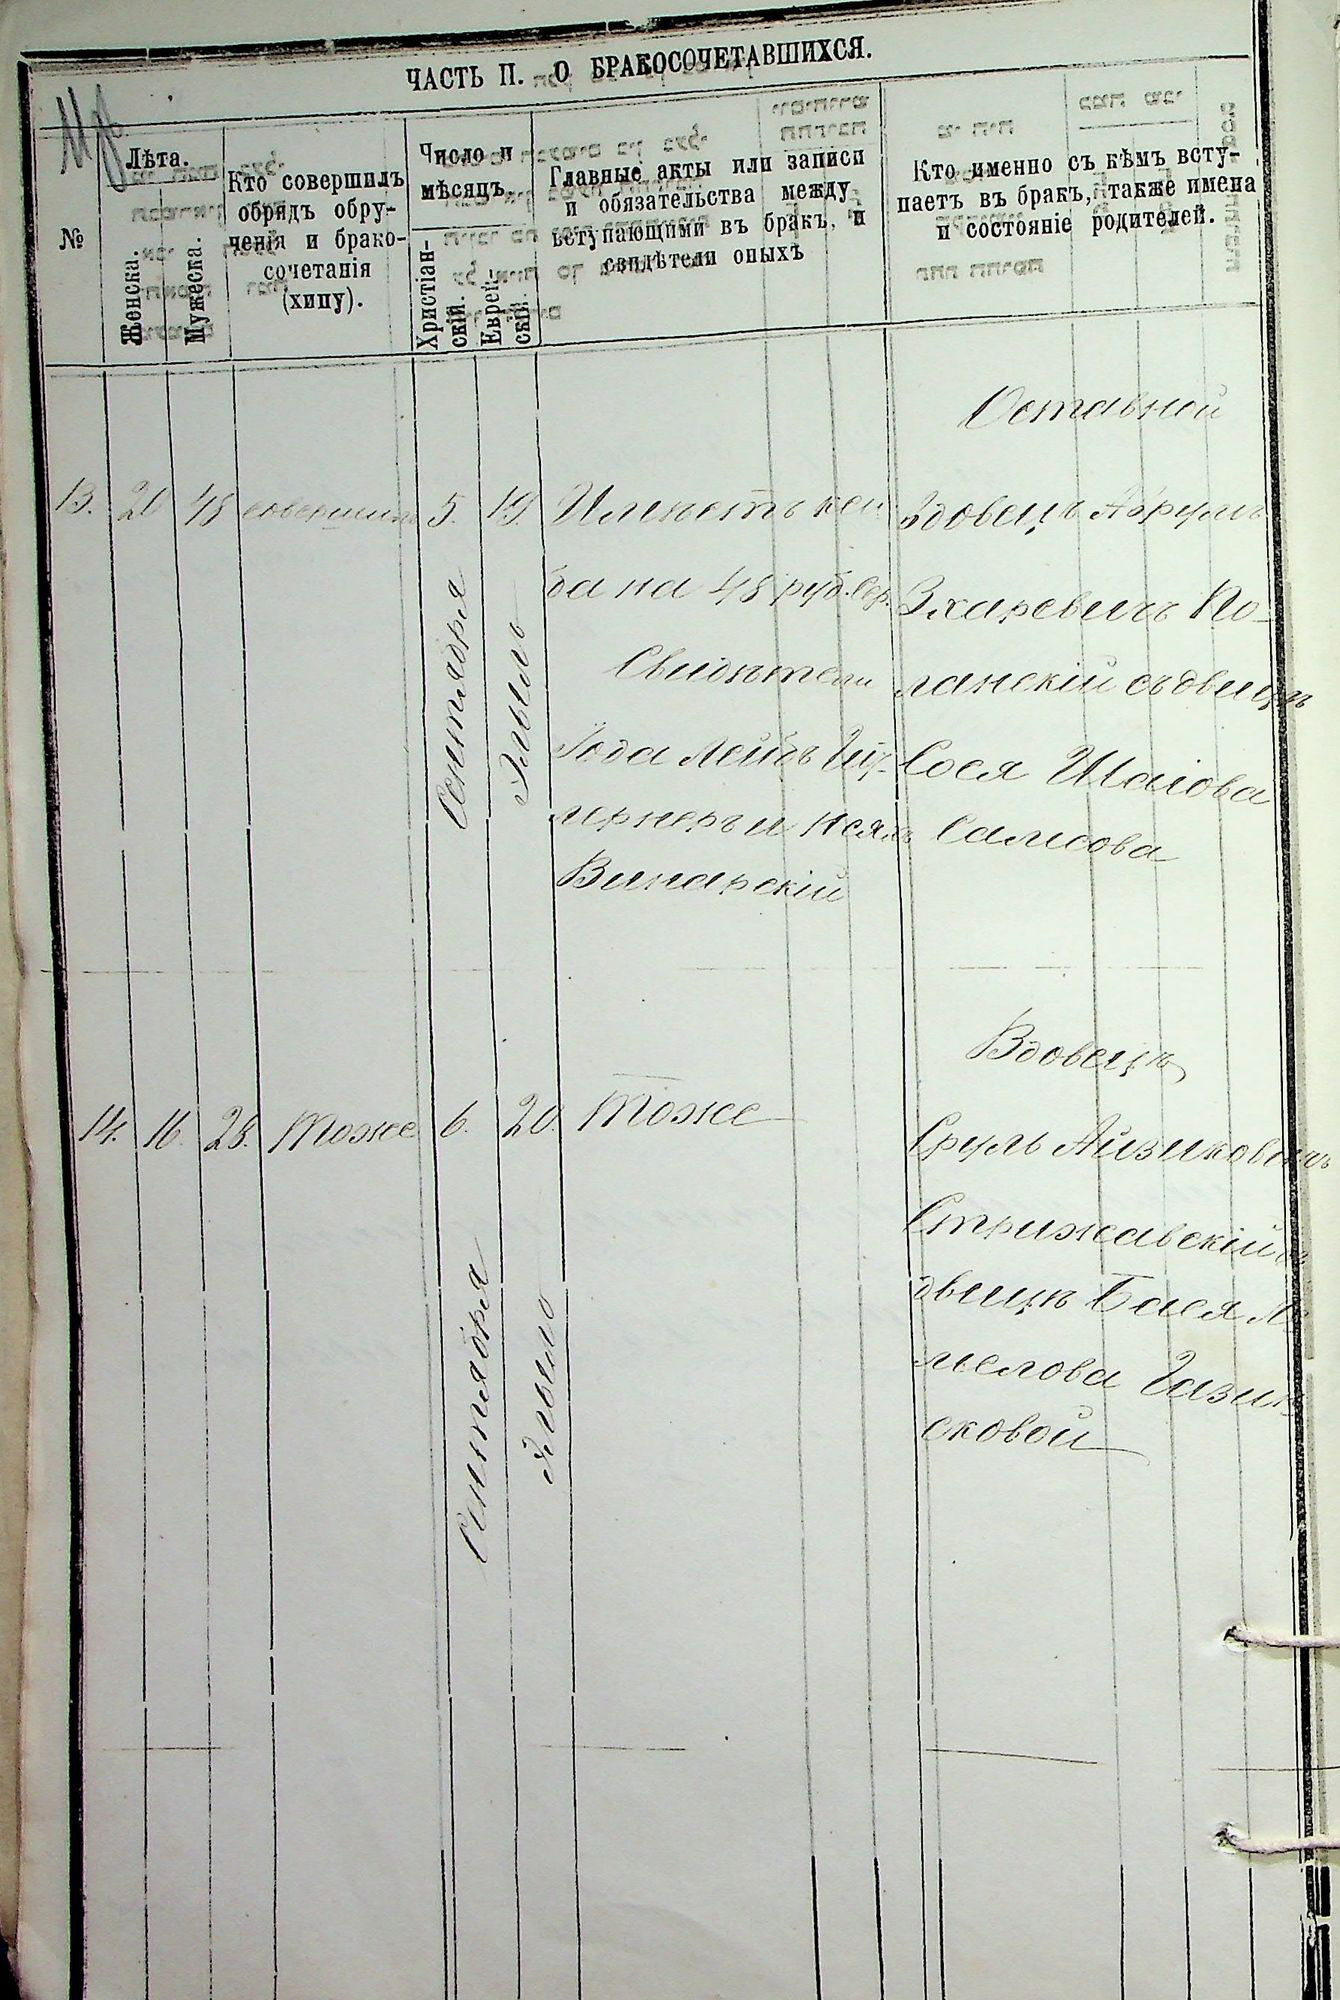 ЧАСТЬ II. О БРАКОСОЧЕТАВШИХСЯ.
№
Лѣта.
Женска.
Мужеска.
Кто совершилъ
обрядъ обру-
ченія и брако-
сочетанія
(хипу).
Число и
мѣсяцъ.
Христіан-
скій.
Еврей-
скій.
Главные акты или записи
и обязательства между
вступающими въ бракъ, и
свидѣтели оныхъ
Кто именно съ кѣмъ всту-
паетъ въ бракъ, также имена
и состояніе родителей.
13. 20 48 совершилъ 5. 19.
Сентября
Элыль
Имѣетъ кеи
ба на 48 руб. сер.
Свидѣтели
Лейбъ
и
Винарскій
Оставной
Вдовецъ Абрумъ
Зхаревичъ По-
ланскій съ двицъ
Сося Шаіова
Самсова
14. 16. 28. Тоже 6. 20. Тоже
Сентября
Элыль
Вдовецъ
Сруль Айзиковичъ
Стрижавскій
двицъ Бася
мелова Газин-
сковой